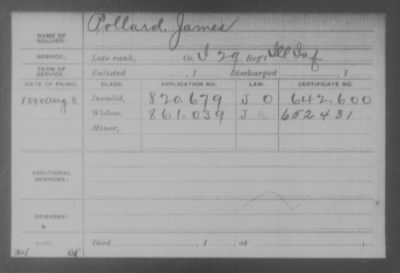 NAME OF SOLDIER: Pollard, James
SERVICE: Late rank, Co. I 29 Reg't Ill Inf
TERM OF SERVICE: Enlisted , 1 Discharged , 1
DATE OF FILING. CLASS. APPLICATION NO. LAW. CERTIFICATE NO.
1890 Aug 8 Invalid, 820.679 J O 642.600
Widow, 861.039 J 652431
Minor,
ADDITIONAL SERVICES:
REMARKS:
Died , 1 , at